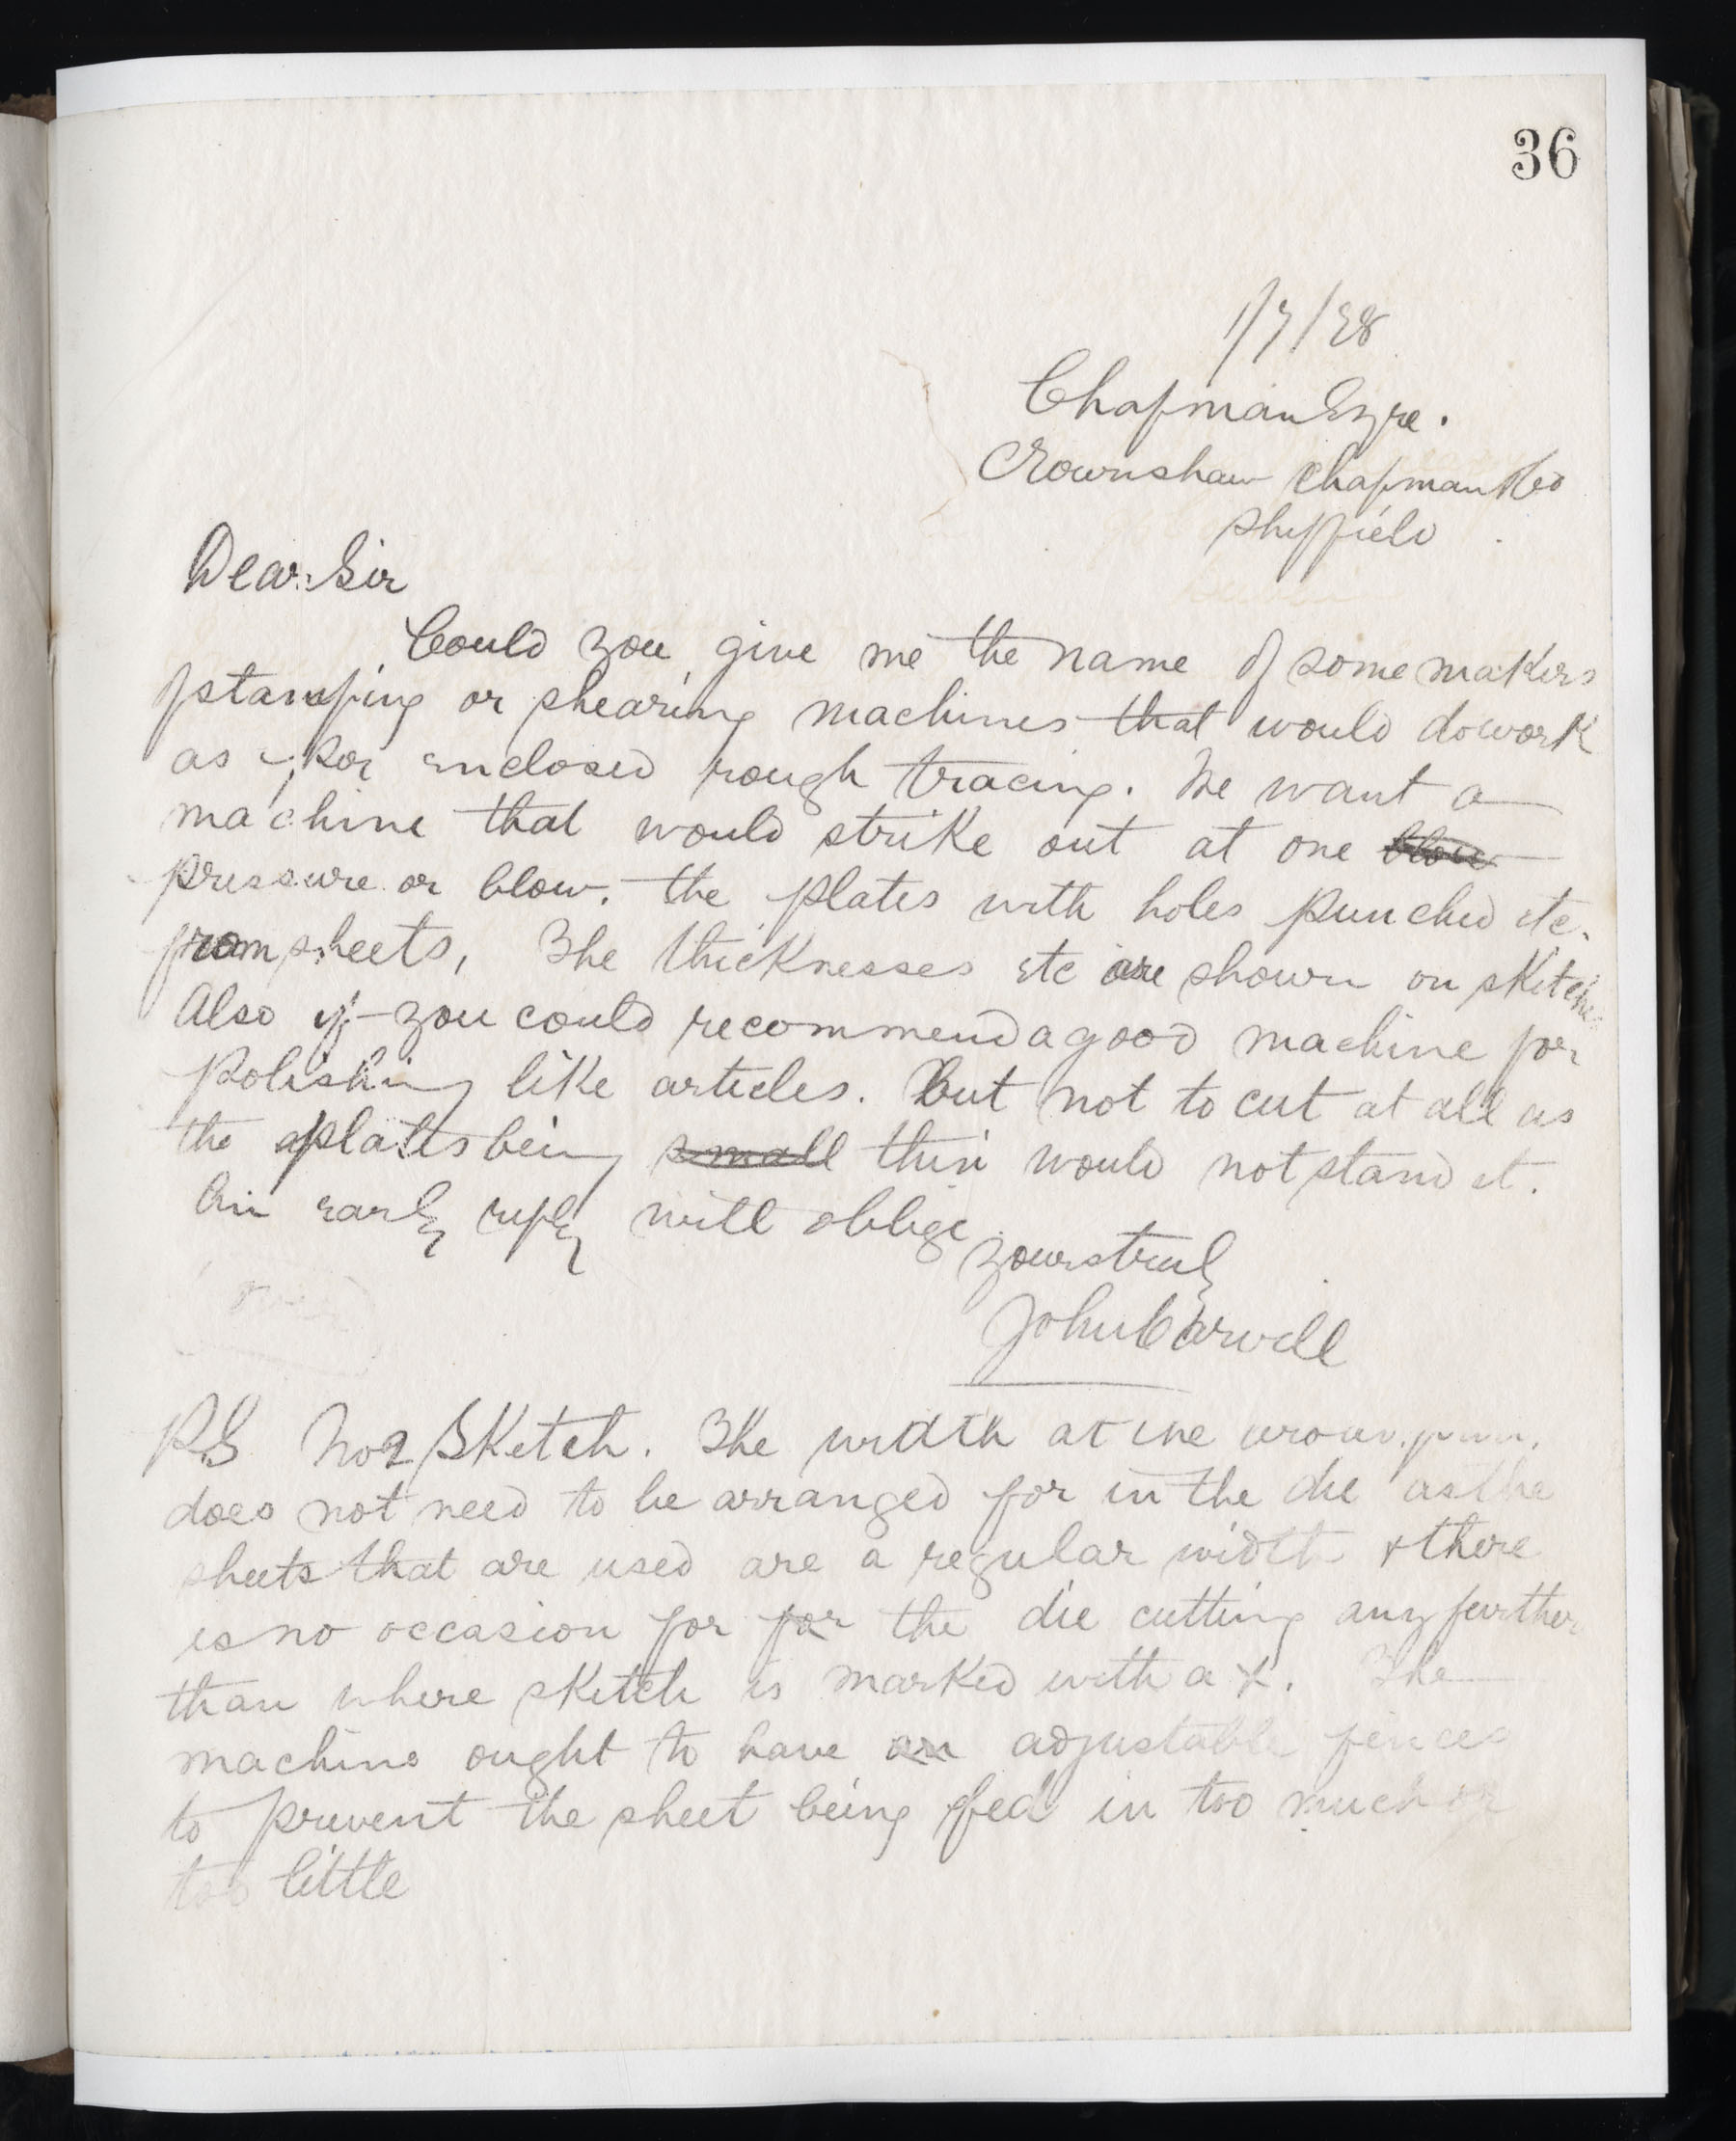 36
1/7/98
Chapman Esqre.
Crownshaw Chapman & Co
Sheffield
Dear Sir
Could you give me the name of some makers
of stamping or shearing machines that would do work
as per enclosed rough tracing. We want a
machine that would strike out at one blow
pressure or blow. the plates with holes punched etc.
from sheets, The thicknesses etc are shown on sketches
Also if you could recommend a good machine for
polishing like articles. But not to cut at all as
the plates being small thin would not stand it.
An early reply will oblige
Yours truly
John Carvell
P.S No 2 Sketch. The width at the
does not need to be arranged for in the die as the
sheets that are used are a regular width & there
is no occasion for for the die cutting any further
than where sketch is marked with a x. The
machine ought to have an adjustable fences
to prevent the sheet being fed in too much or
too little